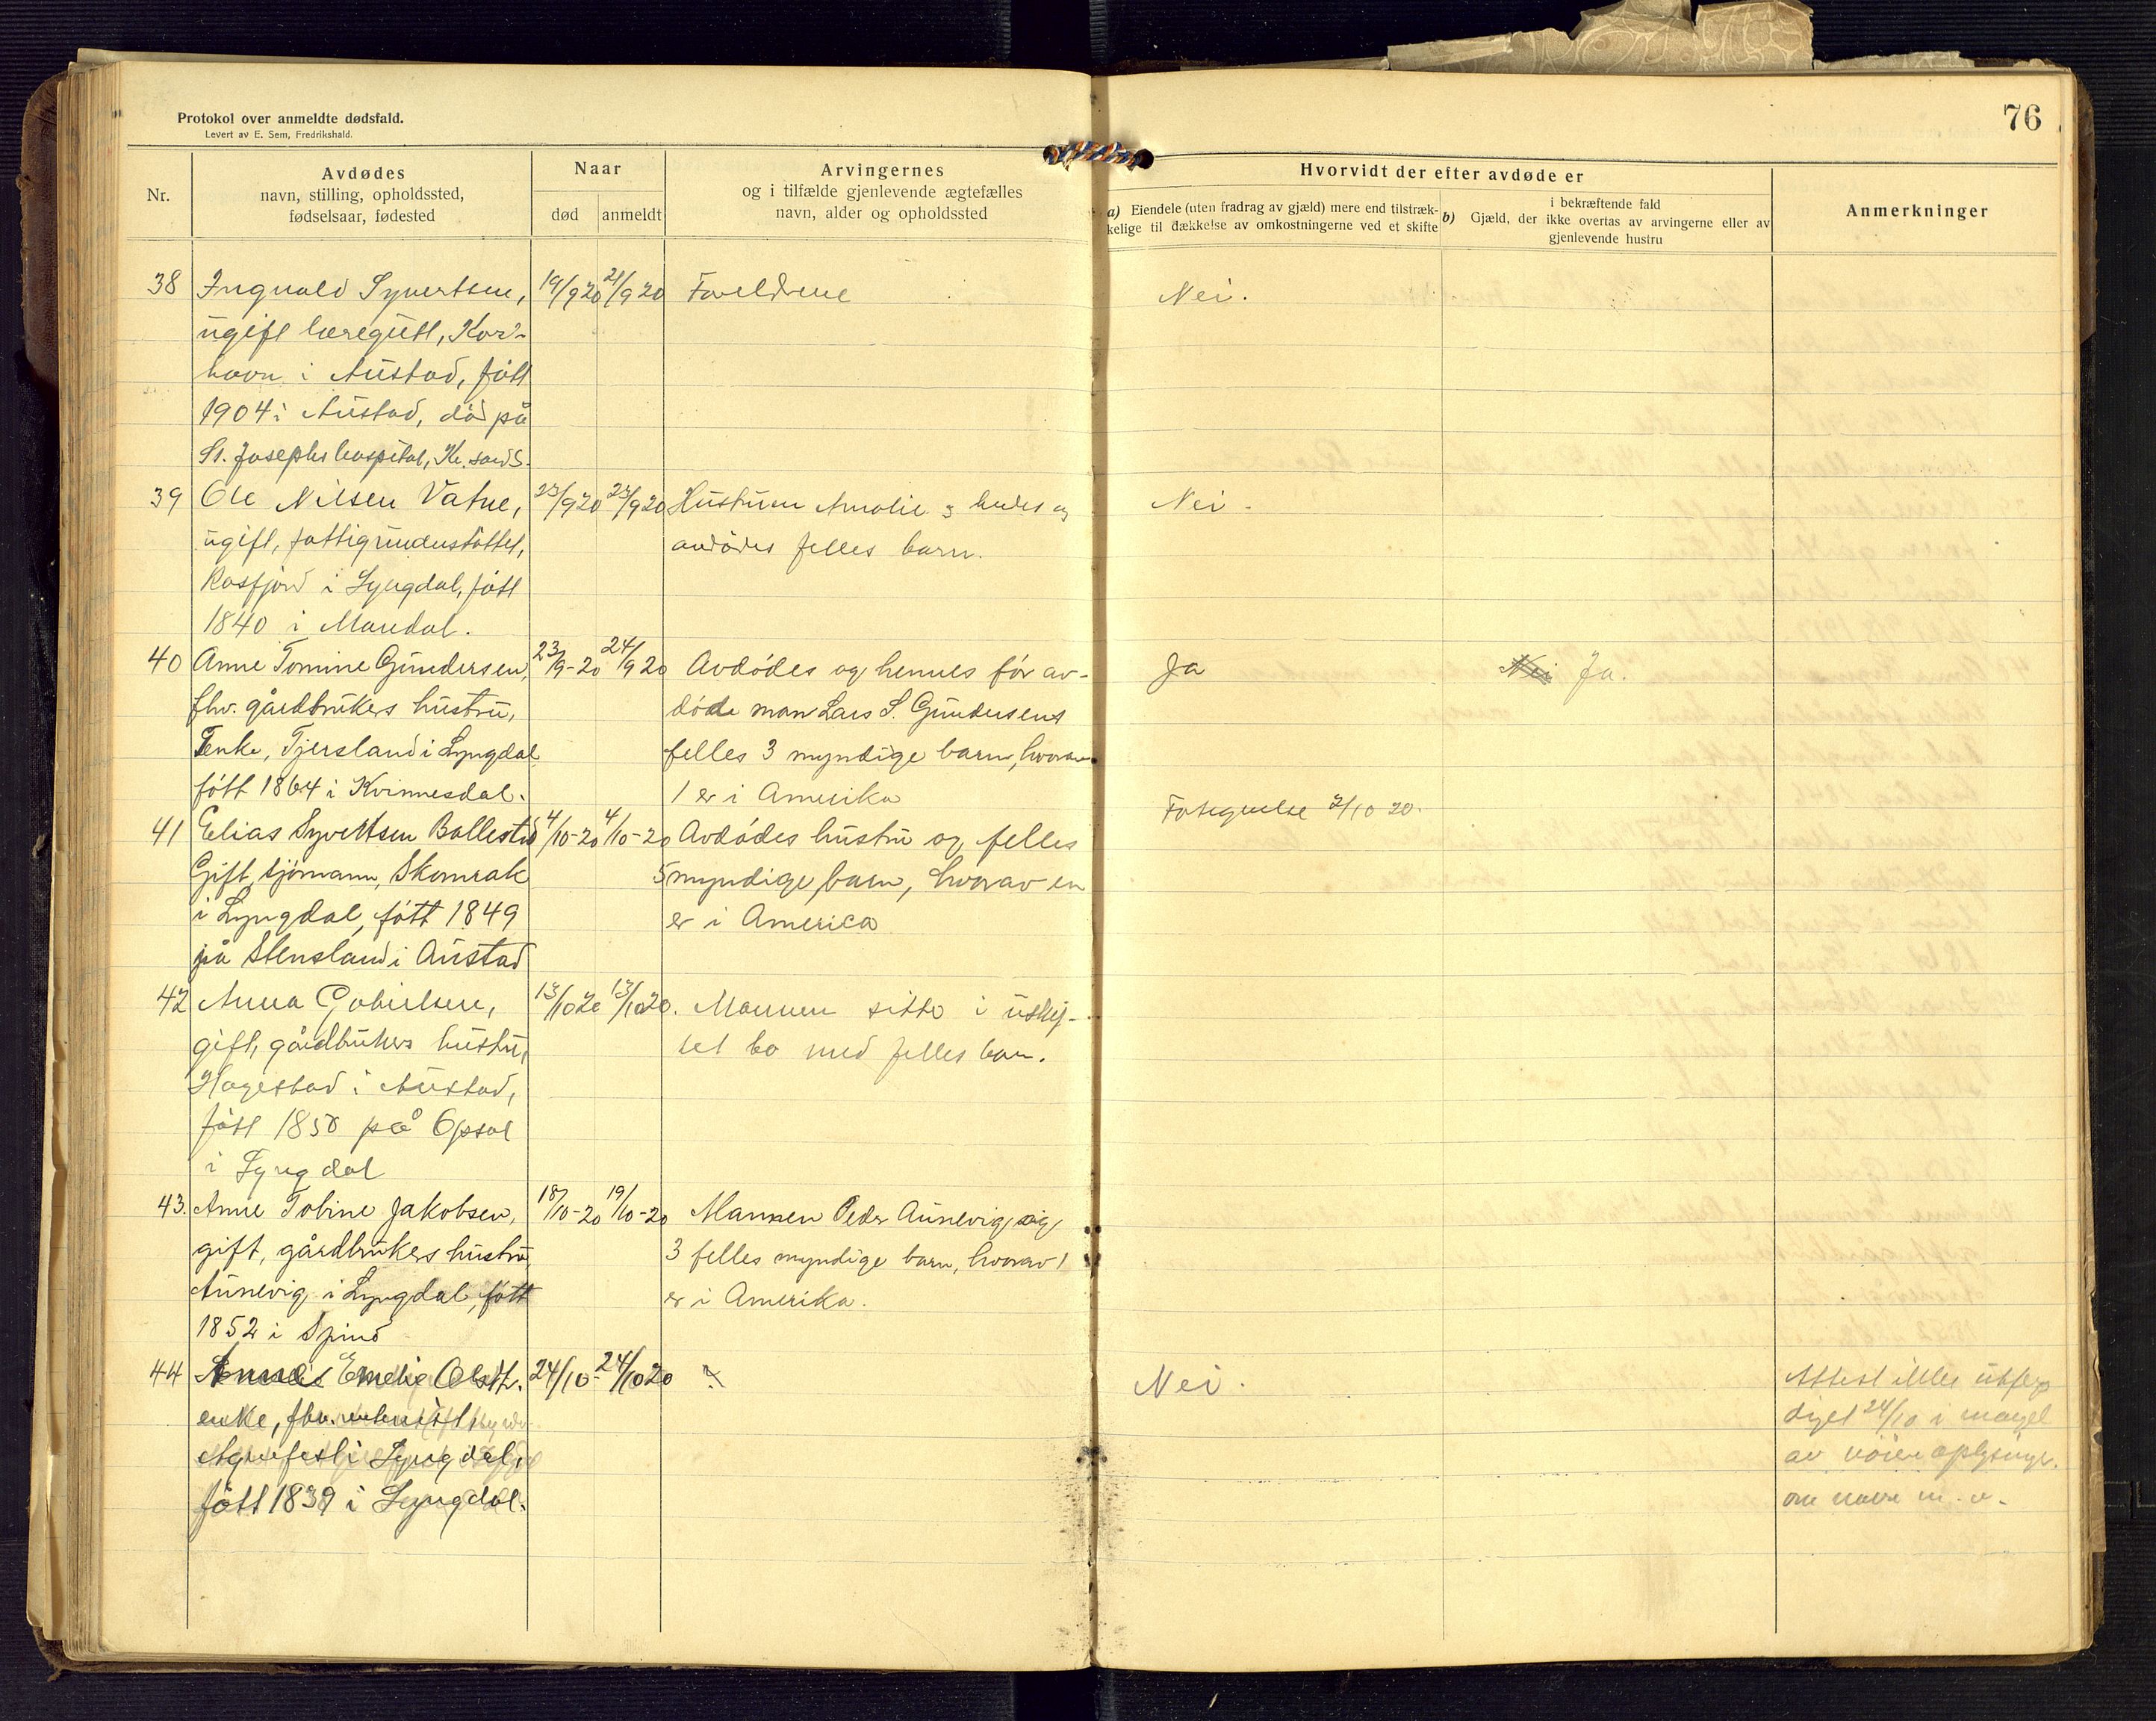 76
Protokol over anmeldte dødsfald.
Levert av E. Sem, Fredrikshald.
Nr.
Avdødes
navn, stilling, opholdssted,
fødselsaar, fødested
Naar
død
anmeldt
Arvingernes
og i tilfælde gjenlevende ægtefælles
navn, alder og opholdssted
Hvorvidt der efter avdøde er
a) Eiendele (uten fradrag av gjæld) mere end tilstræk-
kelige til dækkelse av omkostningerne ved et skifte
b)
i bekræftende fald
Gjæld, der ikke overtas av arvingerne eller av
gjenlevende hustru
Anmerkninger
38 Ingvald Syvertsen, 19/9 20 21/9 20 Foreldrene Nei.
ugift læregutt, Kors-
havn i Austad, født
1904 i Austad, død på
St. Josephs hospital, Kr. sands.
39 Ole Nilsen Vatne, 23/9 20 23/9 20 Hustruen Amalie og hendes og Nei.
ugift, fattigunderstöttet, avdødes felles barn.
Rosfjord i Lyngdal, født
1840 i Mandal.
40 Anne Tomine Gundersen, 23/9-20 24/9 20 Avdödes og hennes för av- Ja Nei Ja.
fhv. gårdbrukers hustru, döde man Lars S. Gundersens
Enke, Tjersland i Lyngdal felles 3 myndige barn, hvorav
fött 1864 i Kvinnesdal. 1 er i Amerika
Forsegnelse 2/10 20.
41 Elias Syvertsen Ballestad 4/10-20 4/10-20 Avdödes hustru og felles
Gift, sjömann, Skomrak 5 myndige barn, hvorav en
i Lyngdal, fött 1849 er i America
på Stensland i Austad
42 Anna Gabrielsen, 13/10 20 13/10 20. Mannen sitter i uskif-
gift, gårdbrukers hustru, tet bo med felles barn.
Hagestad i Austad,
født 1858 på Opsal
i Lyngdal
43. Anne Tobine Jakobsen, 18/10-20 19/10-20 Mannen Peder Aunevig, og
gift, gårdbrukers hustru, 3 felles myndige barn, hvorav 1
Aunevig i Lyngdal, fött er i Amerika.
1852 i Spind
44 Emelie 24/10- 24/10 20 ? Nei. Attest ikke utfer-
enke, fhv. diget 24/10 i mangel
Agnefest i Lyngdal, av nöiere oplysninger
fött 1839 i Lyngdal. om navn m. v.